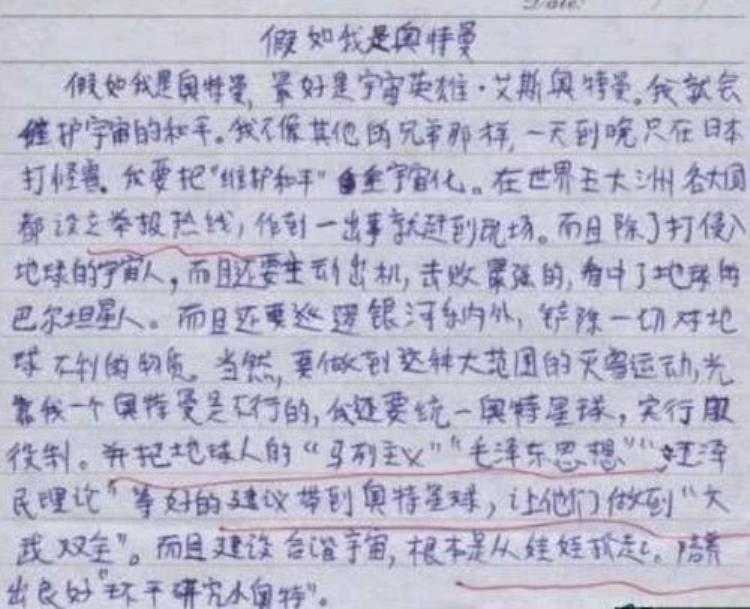 假如我是奥特曼
假如我是奥特曼,最好是宇宙英雄·艾斯奥特曼。我就会
维护宇宙的和平。我不像其他的兄弟那样,一天到晚只在日本
打怪兽。我要把“维护和平”全宇宙化。在世界五大洲各大国
都设立举报热线,作到一出事就赶到现场。而且除了打侵入
地球的宇宙人,而且还要主动出机,击败最强的,看中了地球的
巴尔坦星人。而且还要巡逻银河系内外,铲除一切对地
球不利的物质。当然,要做到这种大范围的灭害运动,光
靠我一个奥特曼是不行的,我还要统一奥特星球,实行服
役制。并把地球人的“马列主义”“毛泽东思想”“江泽
民理论”等好的建议带到奥特星球,让他们做到“文
武双全”。而且建设合谐宇宙,根本是从娃娃抓起。培养
出良好“环平研究小奥特”。